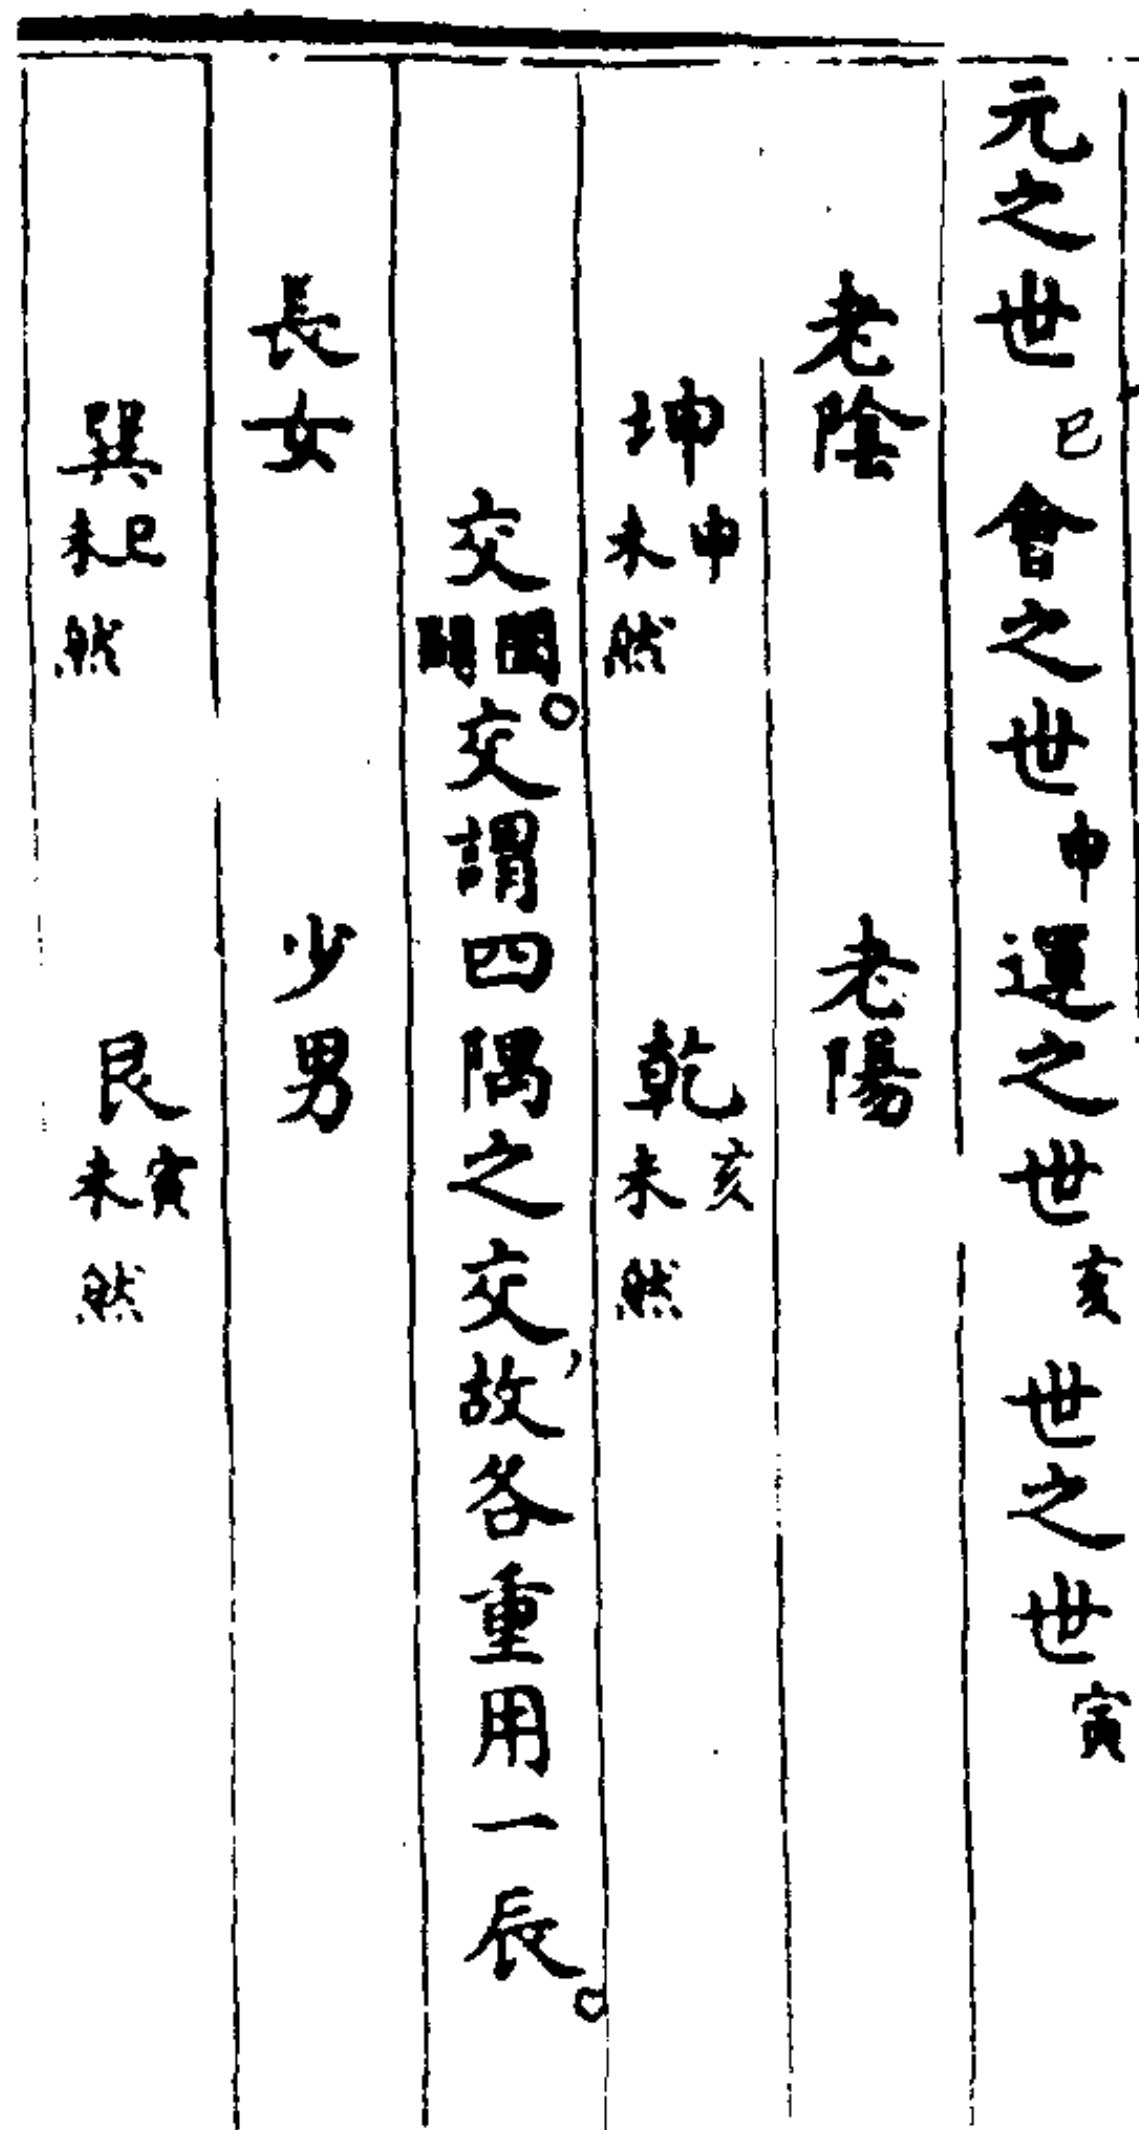 元之世巳會之世申運之世亥世之世寅
老陰 老陽
坤申未然 乾亥未然
交。交謂四隅之交，故各重用一辰。
長女 少男
巽巳未然 艮寅未然